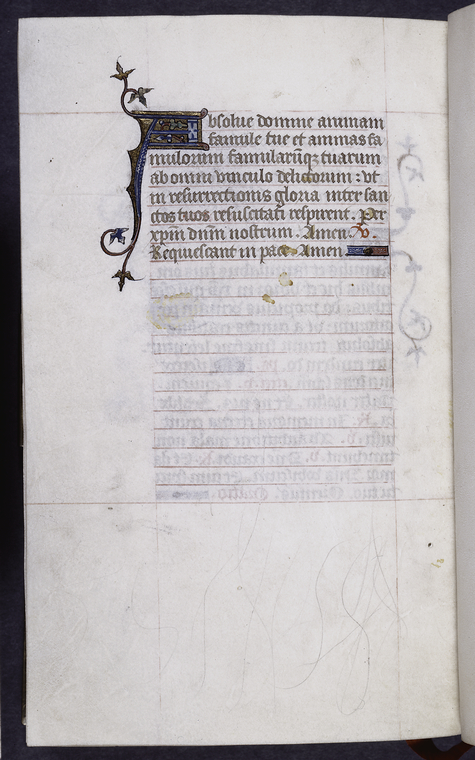 Absolue domine animam
famule tue et animas fa
mulorum famularūqꝫ tuarum
ab omni vinculo delictorum : vt
in resurrectionis gloria inter san
ctos tuos resuscitati respirent. Per
xp̄m dn̄m nostrum. Amen. v.
Requiescant in pace Amen